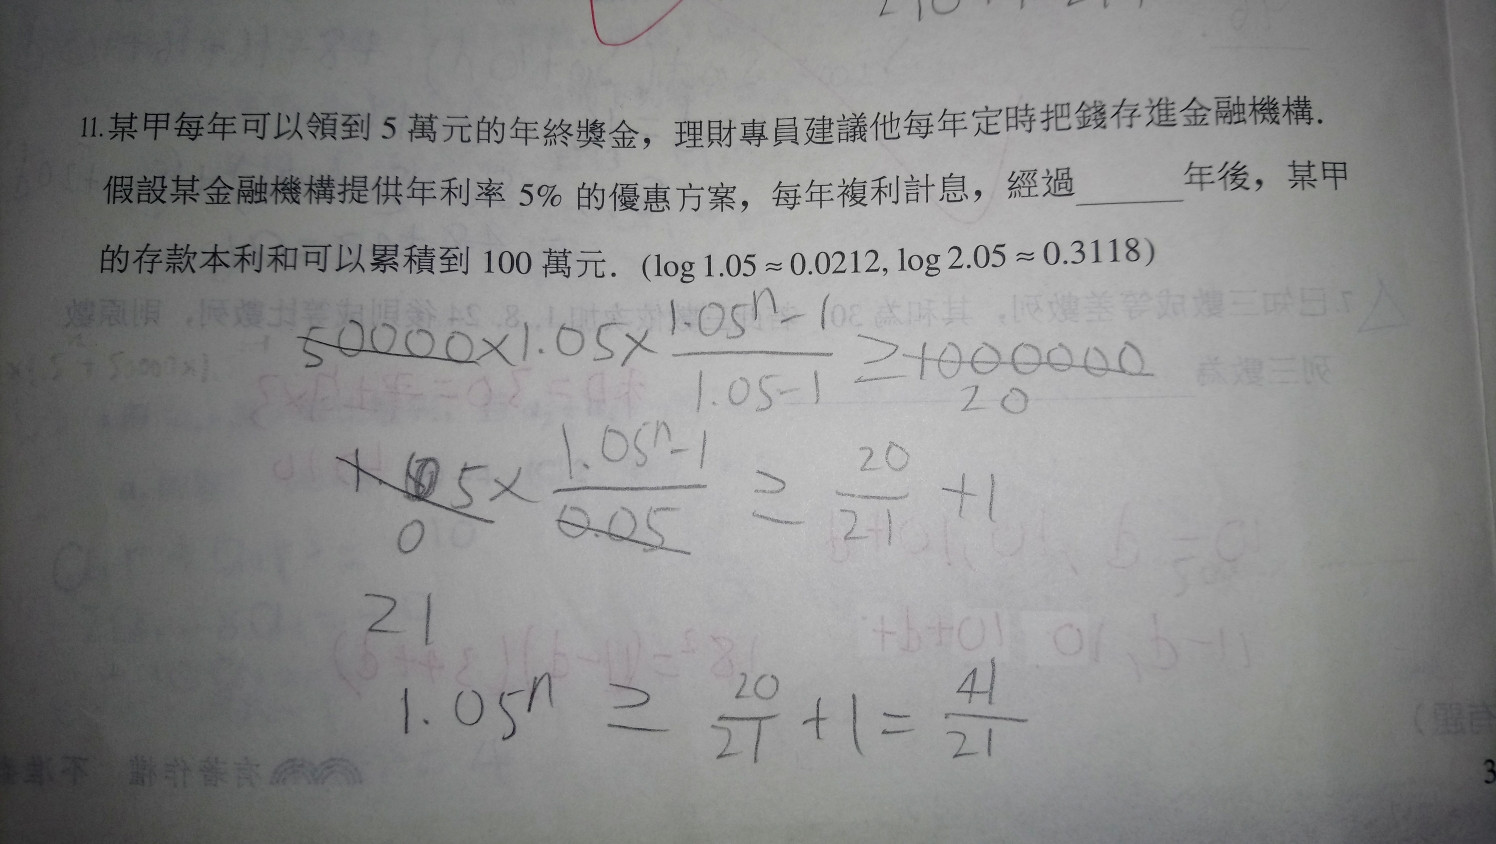 11.某甲每年可以領到 5 萬元的年終獎金，理財專員建議他每年定時把錢存進金融機構．
假設某金融機構提供年利率 5% 的優惠方案，每年複利計息，經過______年後，某甲
的存款本利和可以累積到 100 萬元．(log 1.05 ≈ 0.0212, log 2.05 ≈ 0.3118)
50000×1.05× (1.05^n-1)/(1.05-1) ≥ 1000000
20
1.05× (1.05^n-1)/0.05 ≥ 20/21 +1
0
21
1.05^n ≥ 20/21 +1= 41/21
3